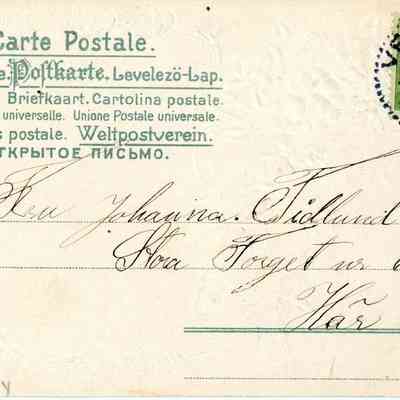 Carte Postale.
e. Postkarte. Levelező-Lap.
Briefkaart. Cartolina postale.
universelle. Unione Postale universale.
s postale. Weltpostverein.
ТКРЫТОЕ ПИСЬМО.
Fru Johanna Fidlund
Stora Torget nr 6
Här